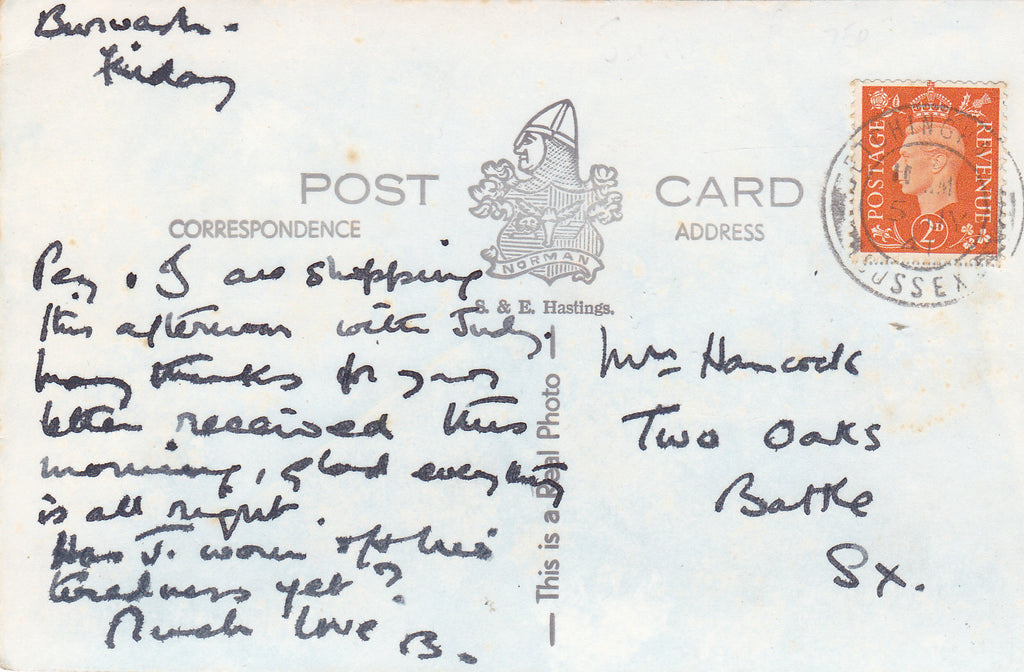 Burwash -
Friday
POST CARD
CORRESPONDENCE
ADDRESS
NORMAN
S. & E. Hastings.
POSTAGE
REVENUE
2D
SUSSEX
Peg & I are shopping
this afternoon with Judy.
Many thanks for your
letter received this
morning, glad everything
is all right.
Has J. worn off his
tiredness yet?
Much love B.
— This is a Real Photo —
Mrs Hancock
Two Oaks
Battle
Sx.